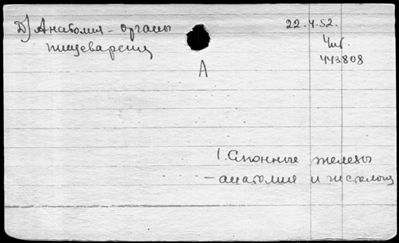 Д) Анатомия - органы
пищеварения
22.4.52.
Чит
443808
А
1. Слюнные железы
- анатомия и